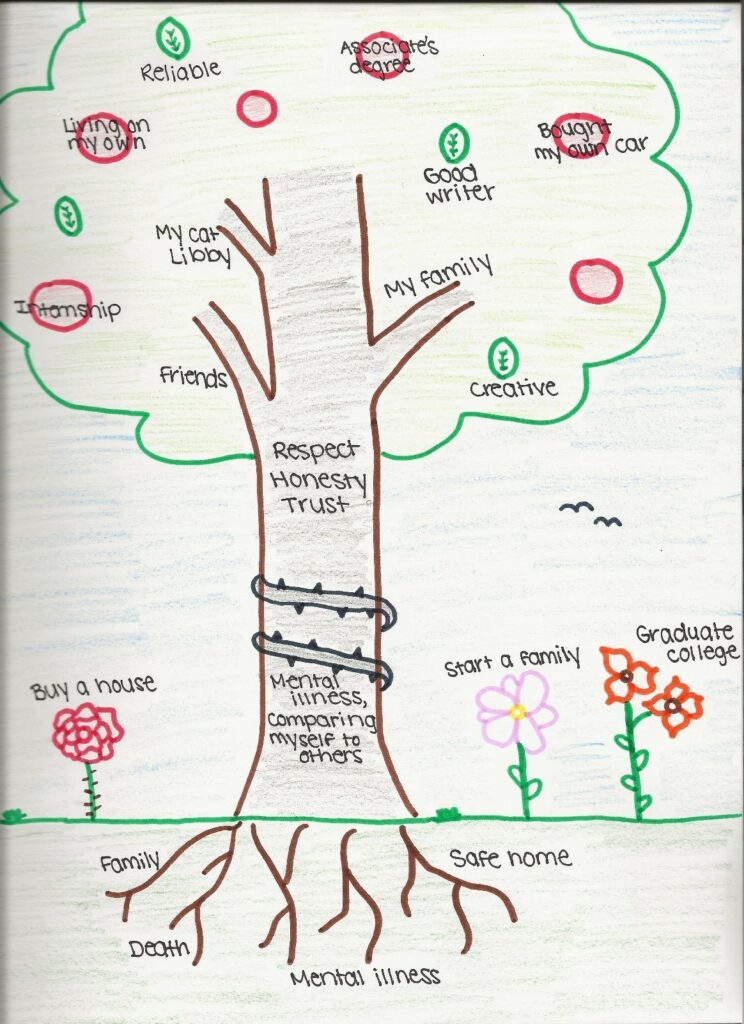 Reliable
Associate's
degree
Living on
my own
Bought
my own car
Good
writer
My cat
Libby
My family
Internship
Friends
Creative
Respect
Honesty
Trust
Graduate
college
Start a family
Buy a house
Mental
illness,
comparing
myself to
others
Family
Safe home
Death
Mental illness